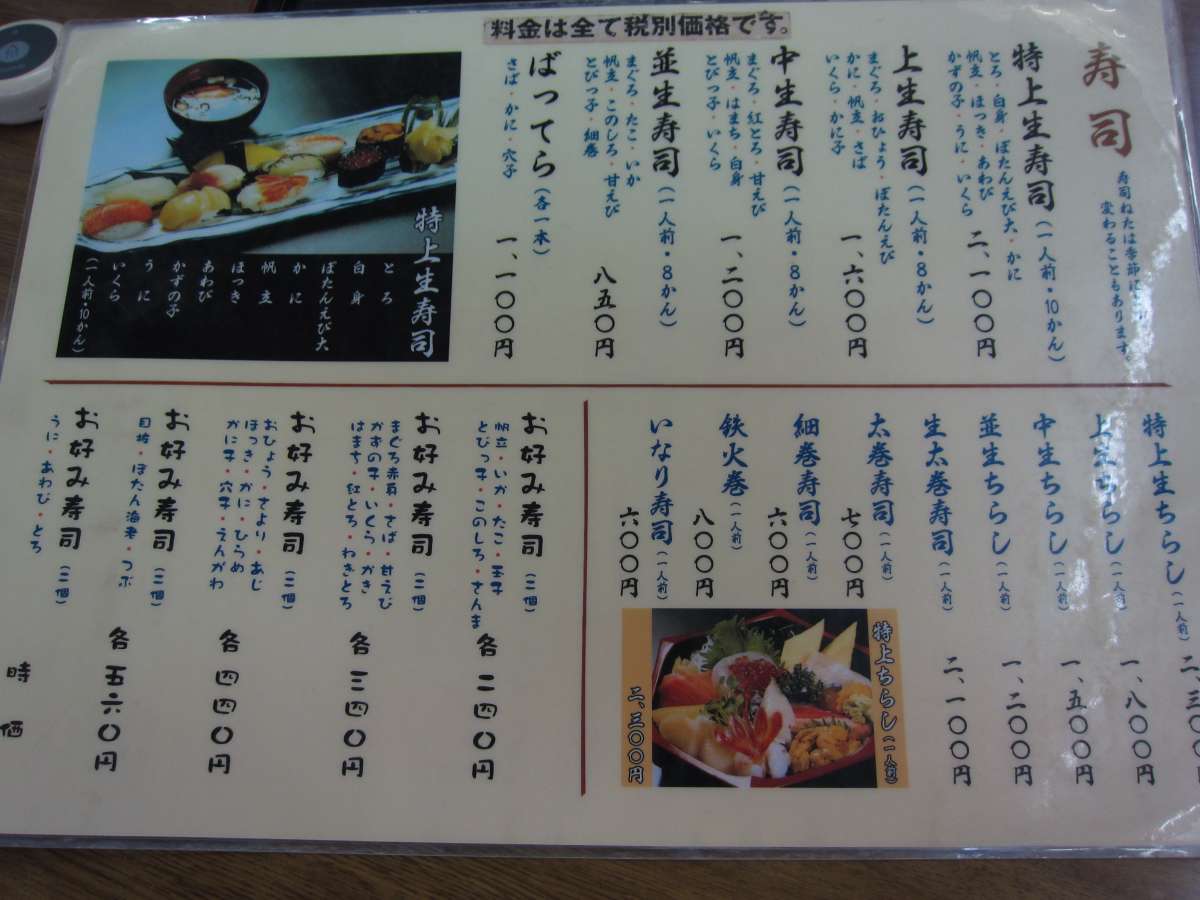 料金は全て税別価格です。
寿司
寿司ねたは季節に
変わることもあります。
特上生寿司（一人前・10かん）
とろ・白身・ぼたんえび大・かに
帆立・ほっき・あわび
かずの子・うに・いくら
二、一〇〇円
上生寿司（一人前・8かん）
まぐろ・おひょう・ぼたんえび
かに・帆立・さば
いくら・かに子
一、六〇〇円
中生寿司（一人前・8かん）
まぐろ・紅とろ・甘えび
帆立・はまち・白身
とびっ子・いくら
一、二〇〇円
並生寿司（一人前・8かん）
まぐろ・たこ・いか
帆立・このしろ・甘えび
とびっ子・細巻
八五〇円
ばってら（各一本）
さば・かに・穴子
一、一〇〇円
特上生寿司
とろ
白身
ぼたんえび大
かに
帆立
ほっき
あわび
かずの子
うに
いくら
（一人前・10かん）
特上生ちらし（一人前）
二、三〇〇
上生ちらし（一人前）
一、八〇〇円
中生ちらし（一人前）
一、五〇〇円
並生ちらし（一人前）
一、二〇〇円
生太巻寿司（一人前）
二、一〇〇円
太巻寿司（一人前）
七〇〇円
細巻寿司（一人前）
六〇〇円
鉄火巻（一人前）
八〇〇円
いなり寿司（一人前）
六〇〇円
特上ちらし（一人前）
二、三〇〇円
お好み寿司（二個）
帆立・いか・たこ・玉子
とびっ子・このしろ・さんま
各二四〇円
お好み寿司（二個）
まぐろ赤身・さば・甘えび
かずの子・いくら・かき
はまち・紅とろ・わきとろ
各三四〇円
お好み寿司（二個）
おひょう・さより・あじ
ほっき・かに・ひらめ
かに子・穴子・えんがわ
各四四〇円
お好み寿司（二個）
目抜・ぼたん海老・つぶ
各五六〇円
お好み寿司（二個）
うに・あわび・とろ
時価